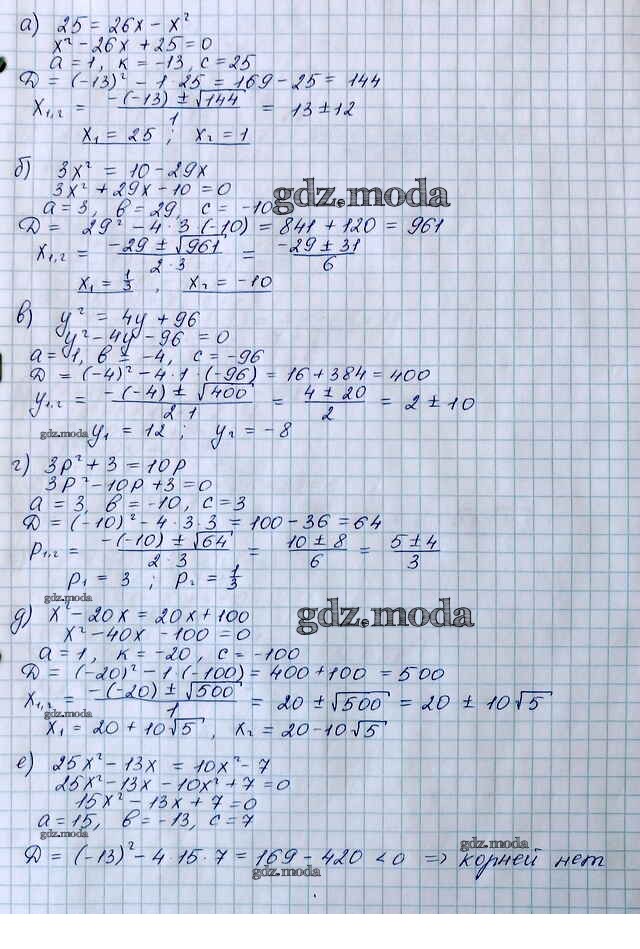 а) 25 = 26x - x²
x² - 26x + 25 = 0
a = 1, к = -13, c = 25
D = (-13)² - 1·25 = 169 - 25 = 144
x₁,₂ = (-(-13) ± √144)/1 = 13 ± 12
x₁ = 25 ; x₂ = 1
б) 3x² = 10 - 29x
3x² + 29x - 10 = 0
gdz.moda
a = 3, в = 29, c = -10
D = 29² - 4·3·(-10) = 841 + 120 = 961
x₁,₂ = (-29 ± √961)/(2·3) = (-29 ± 31)/6
x₁ = 1/3 , x₂ = -10
в) y² = 4y + 96
y² - 4y - 96 = 0
a = 1, в = -4, c = -96
D = (-4)² - 4·1·(-96) = 16 + 384 = 400
y₁,₂ = (-(-4) ± √400)/(2·1) = (4 ± 20)/2 = 2 ± 10
gdz.moda y₁ = 12 ; y₂ = -8
г) 3p² + 3 = 10p
3p² - 10p + 3 = 0
a = 3, в = -10, c = 3
D = (-10)² - 4·3·3 = 100 - 36 = 64
p₁,₂ = (-(-10) ± √64)/(2·3) = (10 ± 8)/6 = (5 ± 4)/3
p₁ = 3 ; p₂ = 1/3
gdz.moda
д) x² - 20x = 20x + 100
gdz.moda
x² - 40x - 100 = 0
a = 1, к = -20, c = -100
D = (-20)² - 1·(-100) = 400 + 100 = 500
x₁,₂ = (-(-20) ± √500)/1 = 20 ± √500 = 20 ± 10√5
gdz.moda
x₁ = 20 + 10√5 , x₂ = 20 - 10√5
е) 25x² - 13x = 10x² - 7
25x² - 13x - 10x² + 7 = 0
15x² - 13x + 7 = 0
a = 15, в = -13, c = 7
gdz.moda
gdz.moda
D = (-13)² - 4·15·7 = 169 - 420 < 0 ⇒ корней нет
gdz.moda